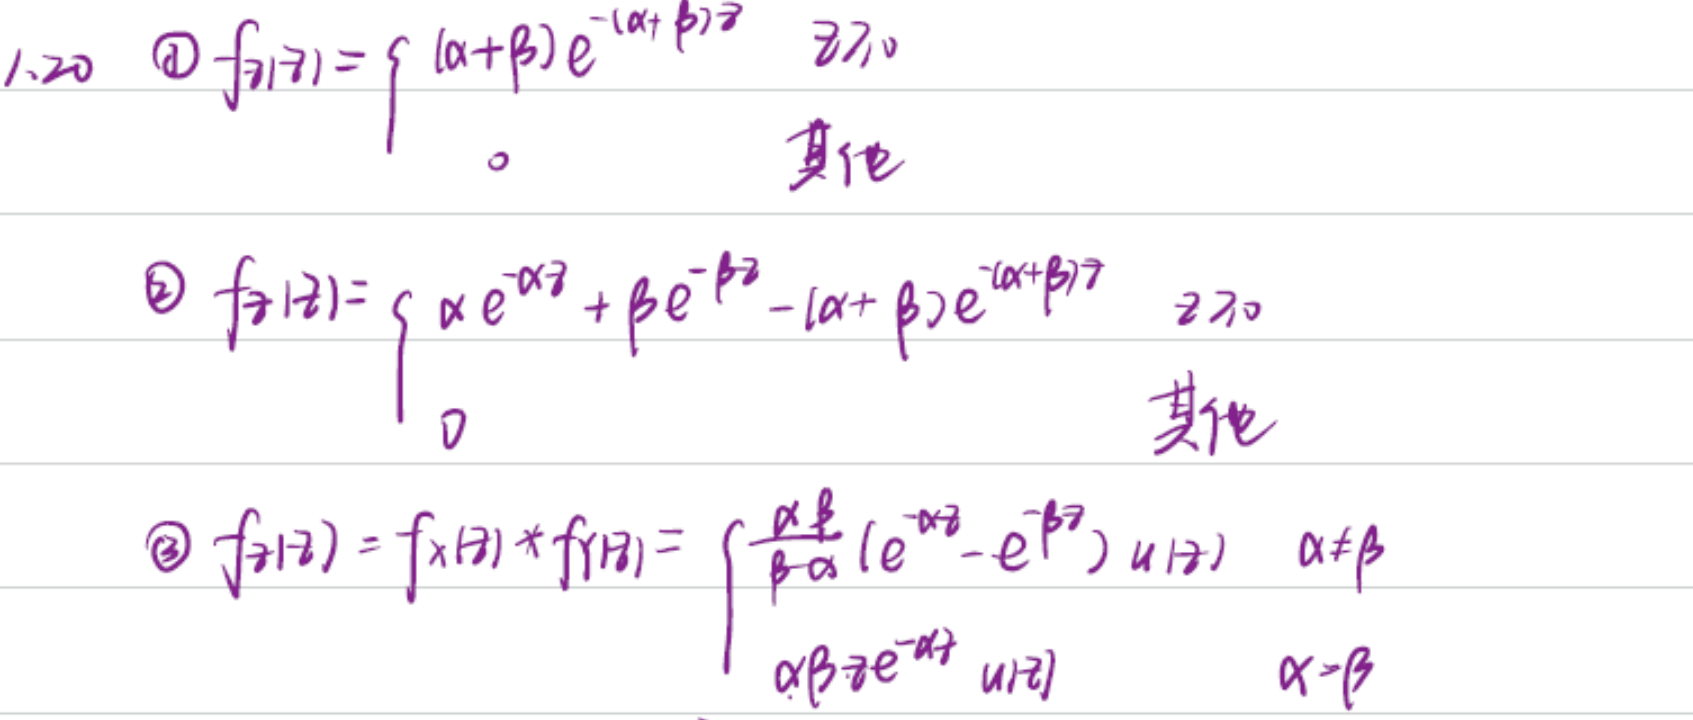 1.20 ① f_Z(z) = { (α+β)e^{-(α+β)z} z≥0
0 其他
② f_Z(z) = { αe^{-αz} + βe^{-βz} - (α+β)e^{-(α+β)z} z≥0
0 其他
③ f_Z(z) = f_X(z) * f_Y(z) = { \frac{αβ}{β-α} (e^{-αz} - e^{-βz}) u(z) α≠β
αβze^{-αz} u(z) α=β